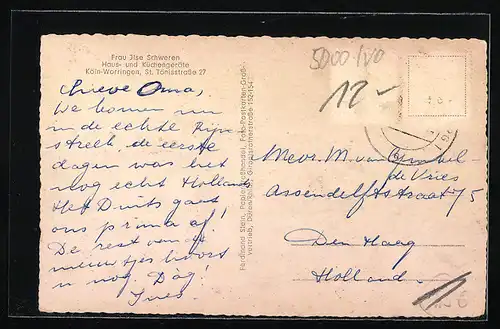 Frau Ilse Schweren
Haus- und Küchengeräte
Köln-Worringen, St. Tönisstraße 27
5000/VO
12-
Lieve Oma,
We komen nu
in de echte Rijn
streek, de eerste
dagen was het
nog echt Hollands
Het Duits gaat
ons prima af!
De rest van de
nieuwtjes hoort
u nog. Dag!
Ines.
Ferdinand Stein, Papier-Großhandel, Foto-Postkarten-Groß-
vertrieb, Düren/Rhld., 152-154
Mevr. M. van
de Vries
Assendelftstraat 75
Den Haag
Holland